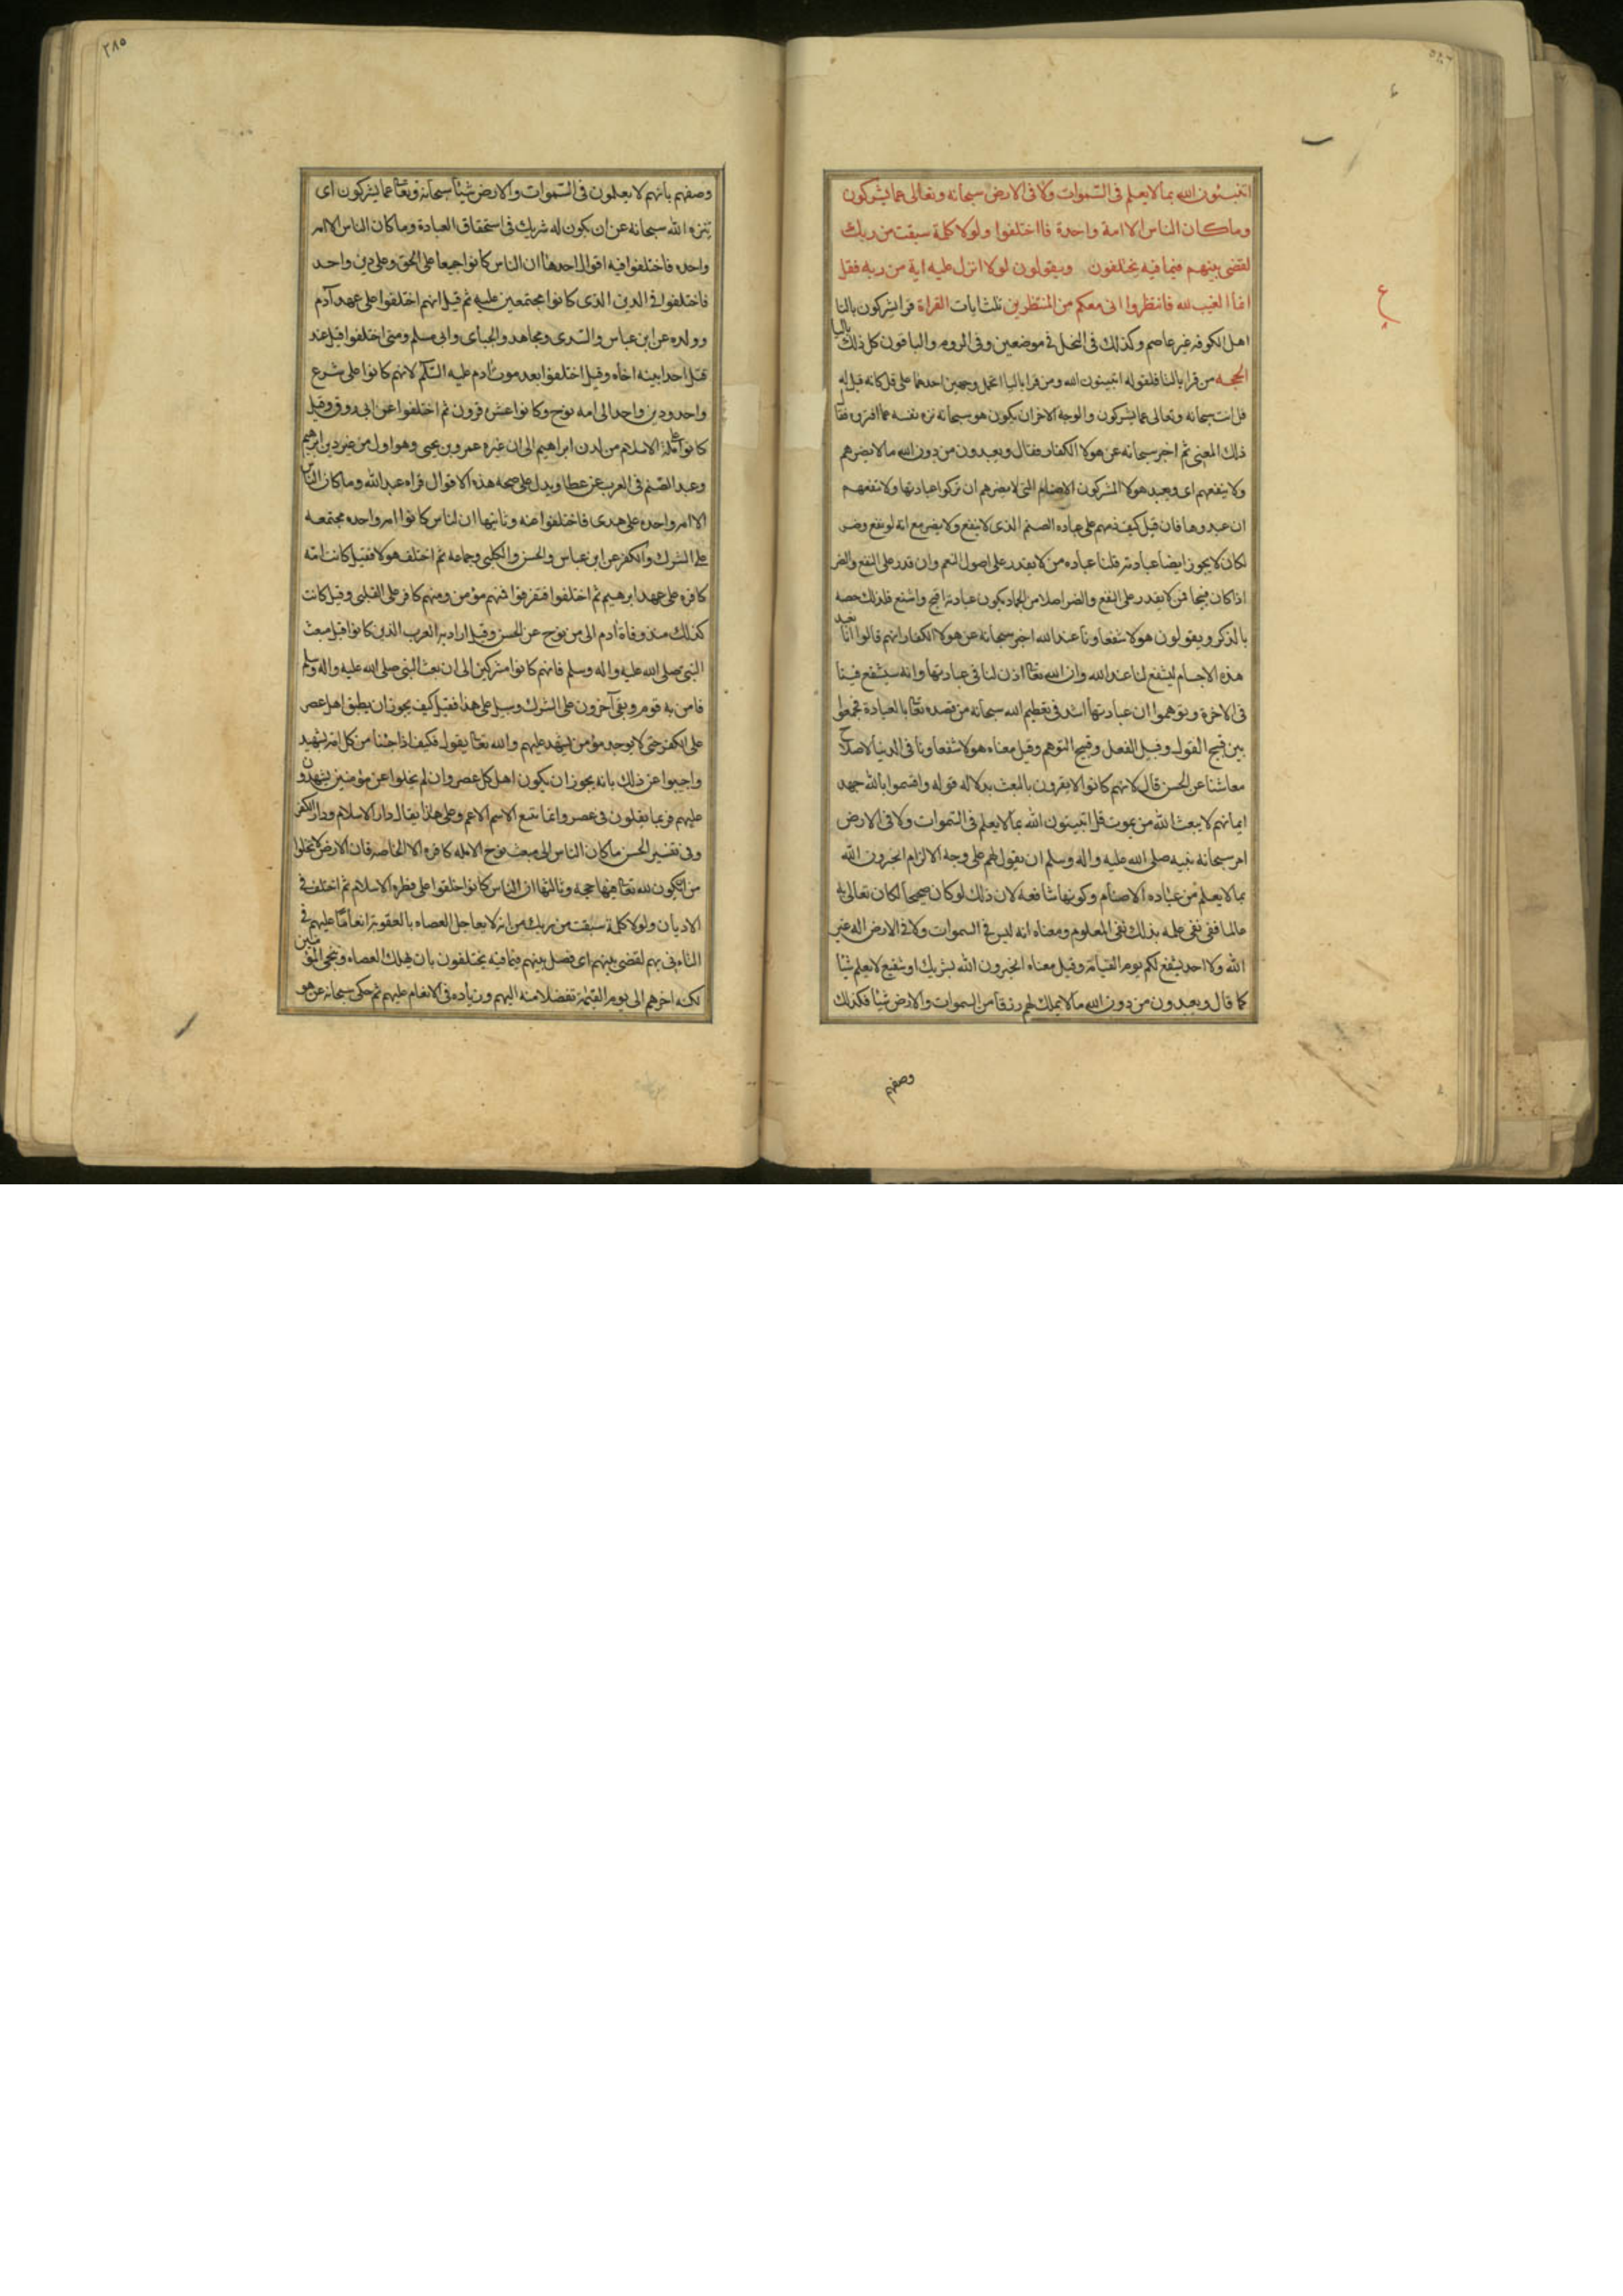 اتنبئون الله بما لا يعلم فى السموات ولا فى الارض سبحانه وتعالى عما يشركون
وما كان الناس الا امة واحدة فااختلفوا ولولا كلمة سبقت من ربك
لقضى بينهم فيما فيه يختلفون ويقولون لولا انزل عليه اية من ربه فقل
انما الغيب لله فانتظروا انى معكم من المنتظرين ثلث ايات القراة قرا تشركون بالتا
اهل الكوفه غير عاصم وكذلك فى النحل فى موضعين وفى الروم والباقون كل ذلك باليا
الحجه من قرا بالتا فلقوله اتنبئون الله ومن قرا باليا احتمل وجهين احدهما على قل كانه قيل له
قل انت سبحانه وتعالى عما يشركون والوجه الاخر ان يكون هو سبحانه نزه نفسه عما افتروه فقال
ذلك المعنى ثم اخبر سبحانه عن هولا الكفار فقال ويعبدون من دون الله ما لا يضرهم
ولا ينفعهم اى ويعبد هولا المشركون الاصنام التى لا يضرهم ان تركوا عبادتها ولا تنفعهم
ان عبدوها فان قيل كيف ذمهم على عباده الصنم الذى لا ينفع ولا يضر مع انه لو نفع وضر
لكان لا يجوز ايضا عبادته قلنا عباده من لا يقدر على اصول النعم وان قدر على النفع والضر
اذا كان قبيحا فمن لا يقدر على النفع والضر اصلا من الجماد يكون عبادته اقبح واشنع فلذلك خصه
بالذكر ويقولون هولا شفعاونا عند الله اخبر سبحانه عن هولا الكفار انهم قالوا انا نعبد
هذه الاجسام ليشفع لنا عند الله وان الله تعا اذن لنا فى عبادتها وانه سيشفع فينا
فى الاخرة وتوهموا ان عبادتها اشد فى تعظيم الله سبحانه من قصده تعا بالعبادة فجمعوا
بين قبيح القول وقبيح الفعل وقبيح التوهم وقيل معناه هولا شفعاونا فى الدنيا لاصلاح
معاشنا عن الحسن قال لانهم كانوا لا يقرون بالبعث بدلاله قوله واقسموا بالله جهد
ايمانهم لا يبعث الله من يموت قل اتنبئون الله بما لا يعلم فى السموات ولا فى الارض
امر سبحانه نبيه صلى الله عليه واله وسلم ان يقول لهم على وجه الالزام اتخبرون الله
بما لا يعلم من عباده الاصنام وكونها شافعه لان ذلك لو كان صحيحا لكان تعالى به
عالما ففى نفى علمه بذلك نفى المعلوم ومعناه انه ليس فى السموات ولا فى الارض اله غير
الله ولا احد يشفع لكم يوم القيامة وقيل معناه اتخبرون الله بشريك او شفيع لا يعلم شيا
كما قال ويعبدون من دون الله ما لا يملك لهم رزقا من السموات والارض شيا فكذلك
وصفهم
٢٨٥
وصفهم بانهم لا يعلمون فى السموات والارض شيا سبحانه وتعا عما يشركون اى
تنزه الله سبحانه عن ان يكون له شريك فى استحقاق العبادة وما كان الناس الا امه
واحده فاختلفوا فيه اقوال احدها ان الناس كانوا جميعا على الحق وعلى دين واحد
فاختلفوا فى الدين الذى كانوا مجتمعين عليه ثم قيل انهم اختلفوا على عهد آدم
وولده عن ابن عباس والسدى ومجاهد والجباى وابى مسلم ومتى اختلفوا قيل عند
قتل احد ابنيه اخاه وقيل اختلفوا بعد موت ادم عليه السلم لانهم كانوا على شرع
واحد ودين واحد الى امه نوح وكانوا عشر قرون ثم اختلفوا عن ابى روق وقيل
كانوا على ملة الاسلام من لدن ابراهيم الى ان غيره عمرو بن يحيى وهو اول من غير دين ابرهيم
وعبد الصنم فى العرب عن عطا ويدل على صحه هذه الاقوال قراه عبد الله وما كان الناس
الا امه واحده على هدى فاختلفوا عنه وثانيها ان الناس كانوا امه واحده مجتمعه
على الشرك والكفر عن ابن عباس والحسن والكلبى وجماعه ثم اختلف هولا فقيل كانت امة
كافره على عهد ابرهيم ثم اختلفوا فتفرقوا فمنهم مؤمن ومنهم كافر على القبلى وقيل كانت
كذلك منذ وفاة ادم الى زمن نوح عن الحسن وقيل اراد به العرب الذين كانوا قبل مبعث
النبى صلى الله عليه واله وسلم فانهم كانوا مشركين الى ان بعث النبى صلى الله عليه واله وسلم
فامن به قوم وبقى آخرون على الشرك وسيل على هذا فقيل كيف يجوز ان يطبق اهل عصر
على الكفر حتى لا يوجد مؤمن يشهد عليهم والله تعا يقول فكيف اذا جئنا من كل امة بشهيد
واجيبوا عن ذلك بانه يجوز ان يكون اهل كل عصر وان لم يخلوا عن مؤمنين يشهدون
عليهم فربما يقلون فى عصر وانما يتبع الاسم الاعم وعلى هذا يقال دار الاسلام ودار الكفر
وفى تفسير الحسن ما كان الناس الى مبعث نوح الا مله كافره الا الخاصه فان الارض لا تخلوا
من ان يكون لله تعا فيها حجه وثالثها ان الناس كانوا خلقوا على فطره الاسلام ثم اختلف فى
الاديان ولولا كلمة سبقت من ربك من انه لا يعاجل العصاه بالعقوبة انعاما عليهم فى
التانى بهم لقضى بينهم اى فصل بينهم فيما فيه يختلفون بان يهلك العصاه وينجى المؤمنين
لكنه اخرهم الى يوم القيمة تفضلا منه اليهم وزياده فى الانعام عليهم ثم حكى سبحانه عن هو